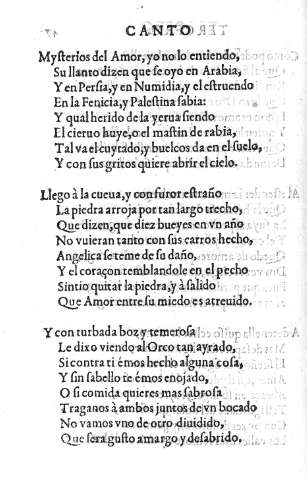 CANTO
Mysterios del Amor, yo no lo entiendo,
Su llanto dizen que se oyo en Arabia,
Y en Persia, y en Numidia, y el estruendo
En la Fenicia, y Palestina sabia:
Y qual herido de la yerua siendo
El cieruo huye, o el mastin de rabia,
Tal va el cuytado, y buelcos da en el suelo,
Y con sus gritos quiere abrir el cielo.
Llego à la cueua, y con furor estraño
La piedra arroja por tan largo trecho,
Que dizen, que diez bueyes en vn año
No vuieran tanto con sus carros hecho,
Angelica se teme de su daño,
Y el coraçon temblandole en el pecho
Sintio quitar la piedra, y à salido
Que Amor entre su miedo es atreuido.
Y con turbada boz y temerosa
Le dixo viendo al Orco tan ayrado,
Si contra ti émos hecho alguna cosa,
Y sin sabello te émos enojado,
O si comida quieres mas sabrosa
Traganos à ambos juntos de vn bocado
No vamos vno de otro diuidido,
Que sera gusto amargo y desabrido.